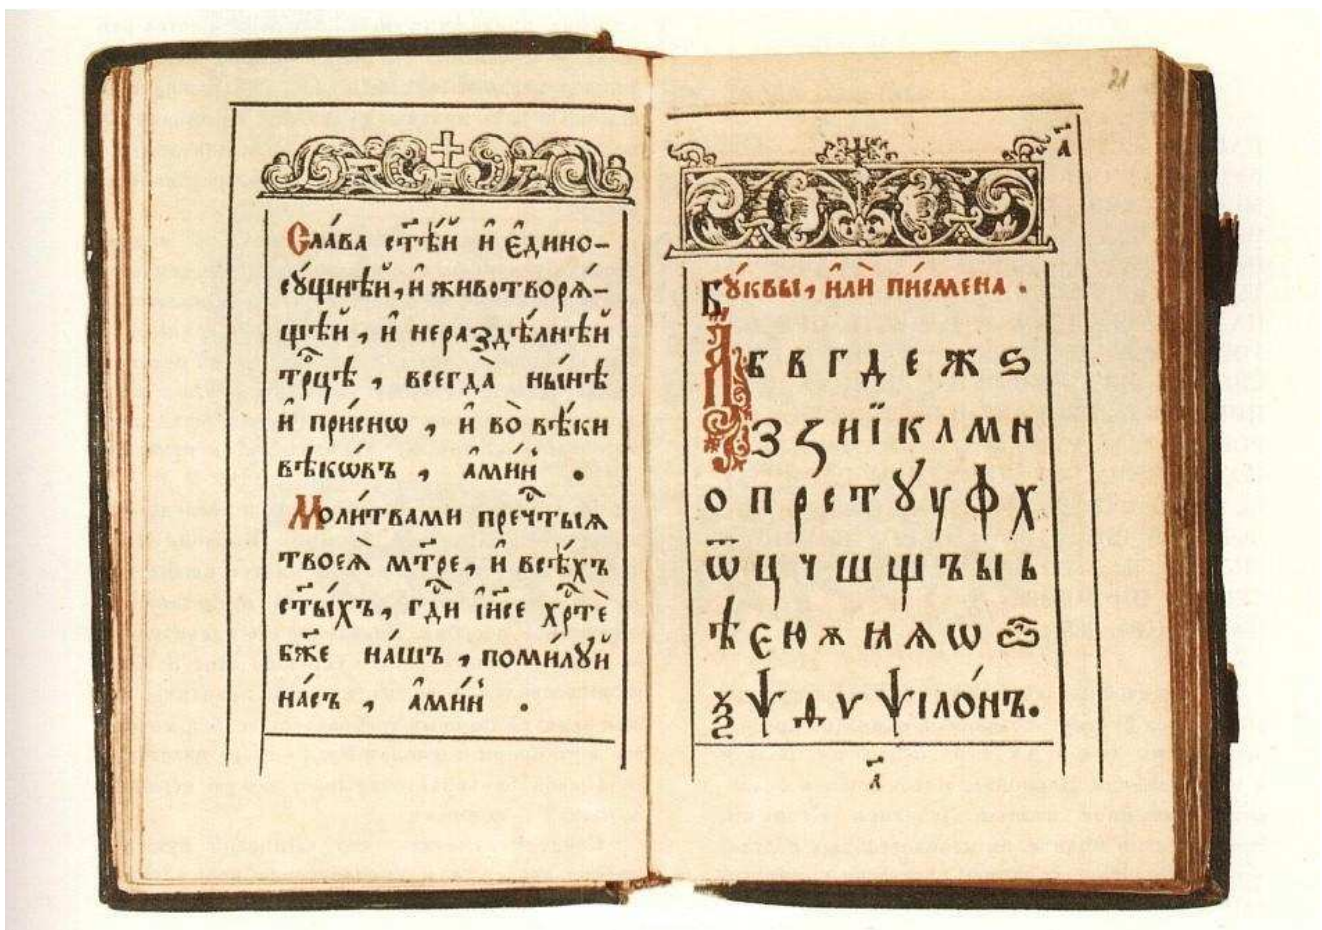 Сла́ва ст҃ѣ́й и҆ є҆дино-
сꙋ́щнѣй, и҆ животворѧ́-
щѣй, и҆ нераздѣ́лнѣй
трⷪ҇цѣ, всегда̀ ны́нѣ
и҆ при́снѡ, и҆ во̀ вѣ́ки
вѣкѡ́въ, а҆ми́нь.
Моли́твами пречⷭ҇тыѧ
твоеѧ̀ мт҃ре, и҆ всѣ́хъ
ст҃ы́хъ, гдⷭ҇и і҆и҃се хрⷭ҇тѐ
бж҃е на́шъ, поми́лꙋй
на́съ, а҆ми́нь.
21
а҃
Бꙋ́квы, и҆лѝ пи́смена.
А б в г д е ж ѕ
з ꙁ и ї к л м н
о п р с т ꙋ у ф х
ѿ ц ч ш щ ъ ы ь
ѣ є ю ѫ ꙗ ѧ ѡ ѽ
ѯ ѱ ѳ ѵ ѱіло́нъ.
а҃